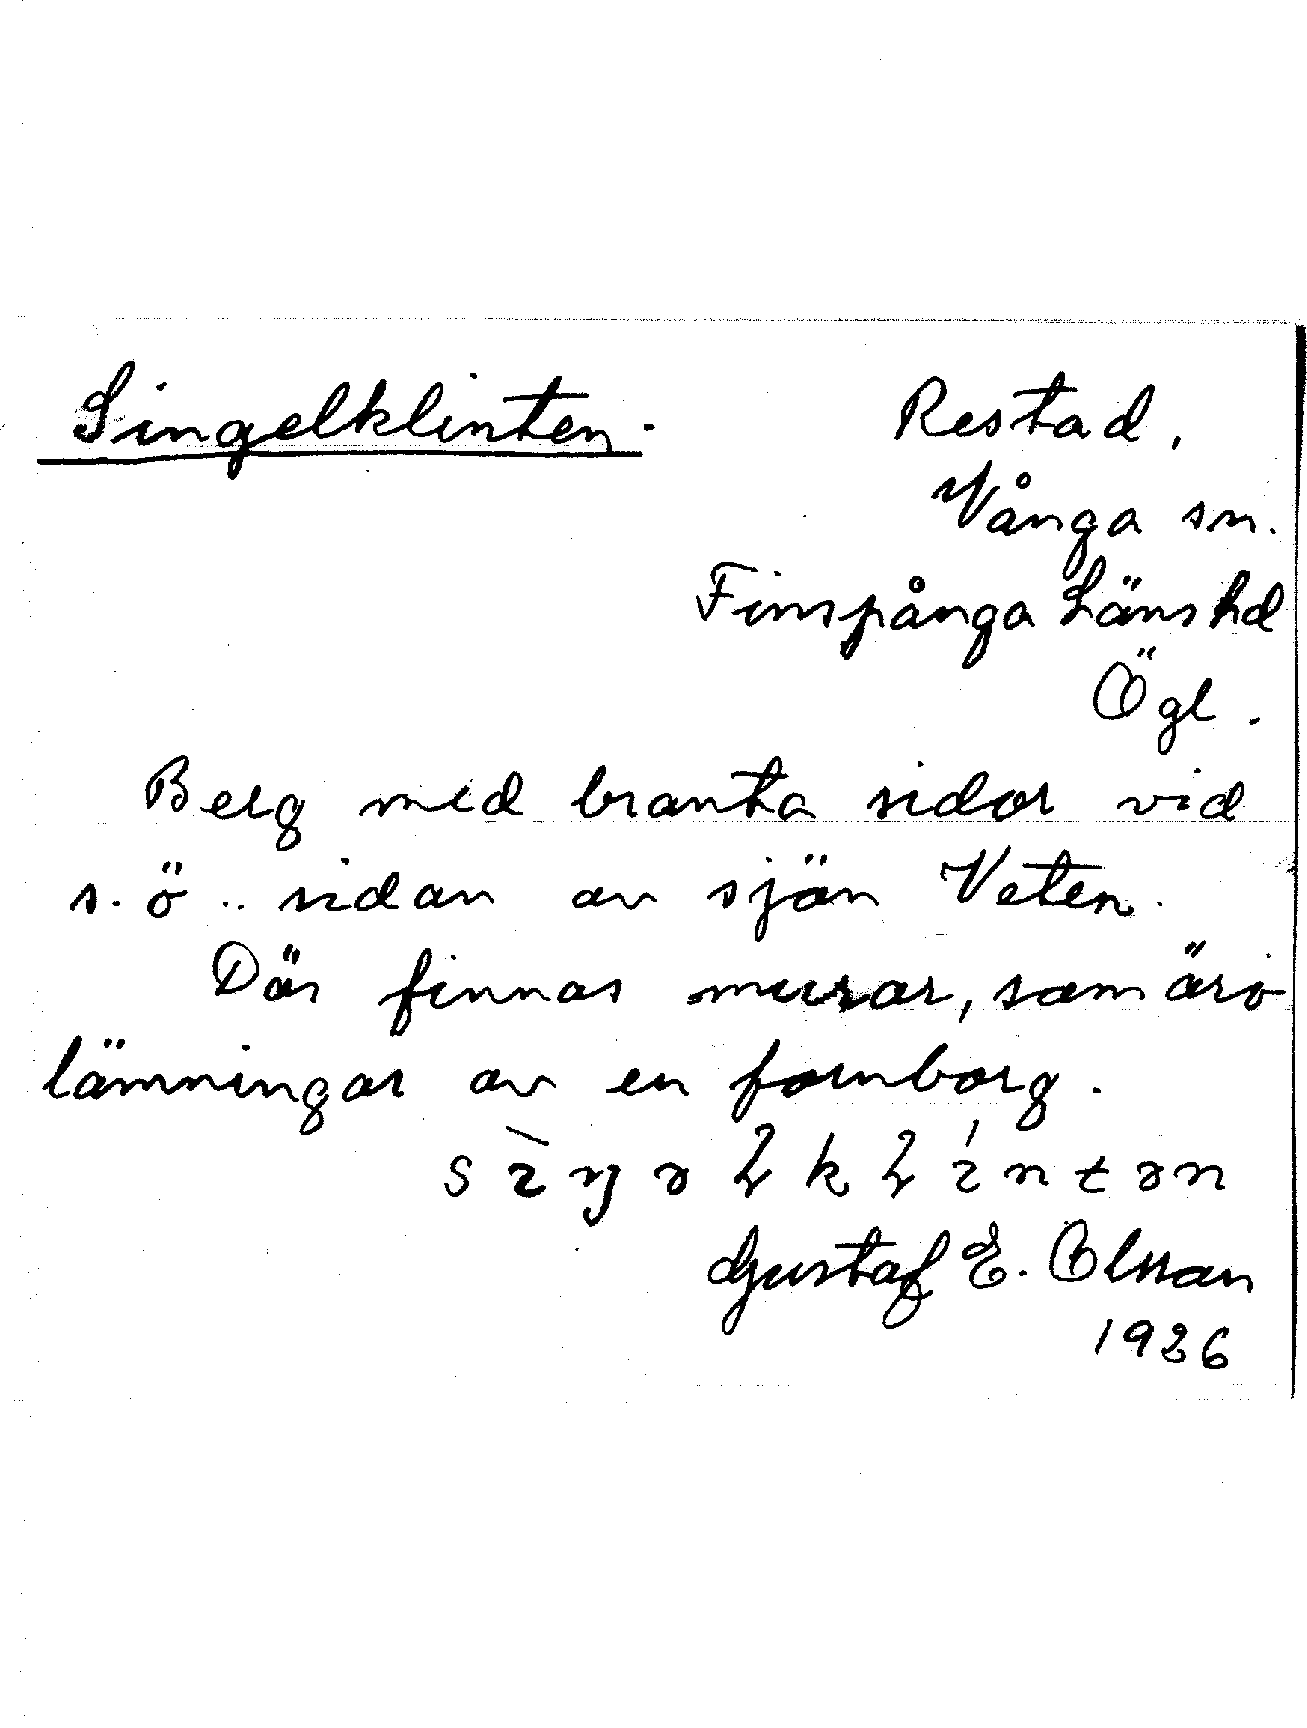 Singelklinten.
Restad,
Vånga sn.
Finspånga Länshd
Ögl.
Berg med branta sidor vid
s. ö.. sidan av sjön Veten.
Där finnas murar, som äro
lämningar av en fornborg.
Gustaf E. Olsson
1926